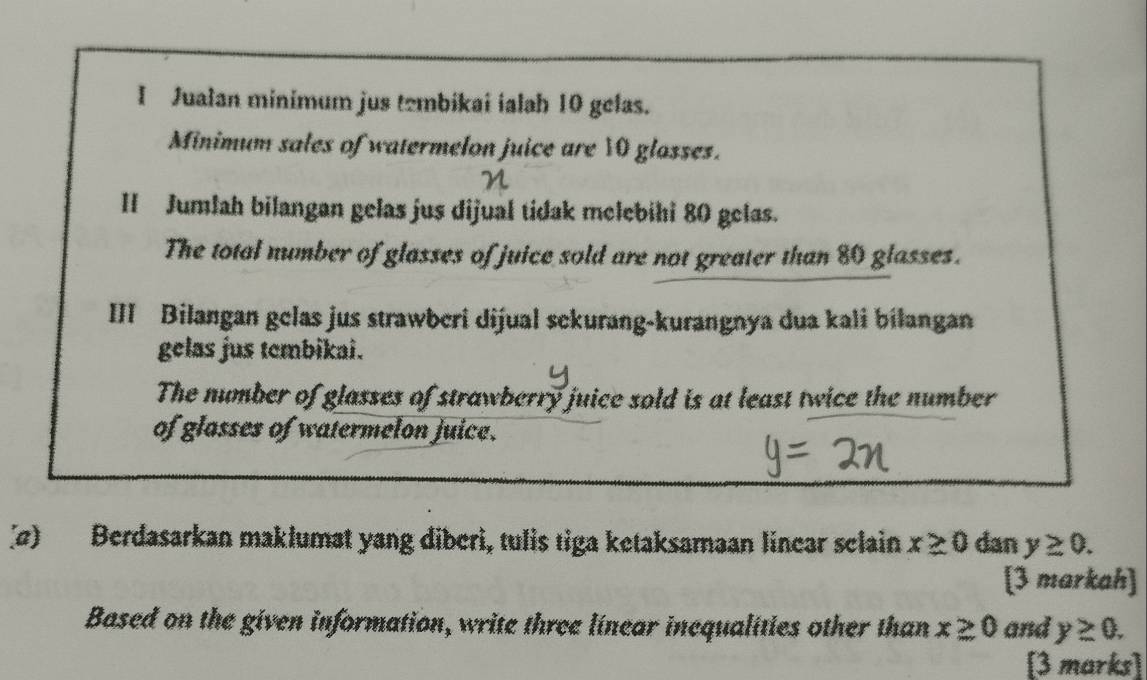 I Jualan minimum jus tembikai ialah 10 gelas.
Minimum sales of watermelon juice are 10 glasses.
x
II Jumlah bilangan gelas jus dijual tidak melebihi 80 gelas.
The total number of glasses of juice sold are not greater than 80 glasses.
III Bilangan gelas jus strawberi dijual sekurang-kurangnya dua kali bilangan
gelas jus tembikai.
y
The number of glasses of strawberry juice sold is at least twice the number
of glasses of watermelon juice.
y = 2x
(a) Berdasarkan maklumat yang diberi, tulis tiga ketaksamaan linear selain x ≥ 0 dan y ≥ 0.
[3 markah]
Based on the given information, write three linear inequalities other than x ≥ 0 and y ≥ 0.
[3 marks]